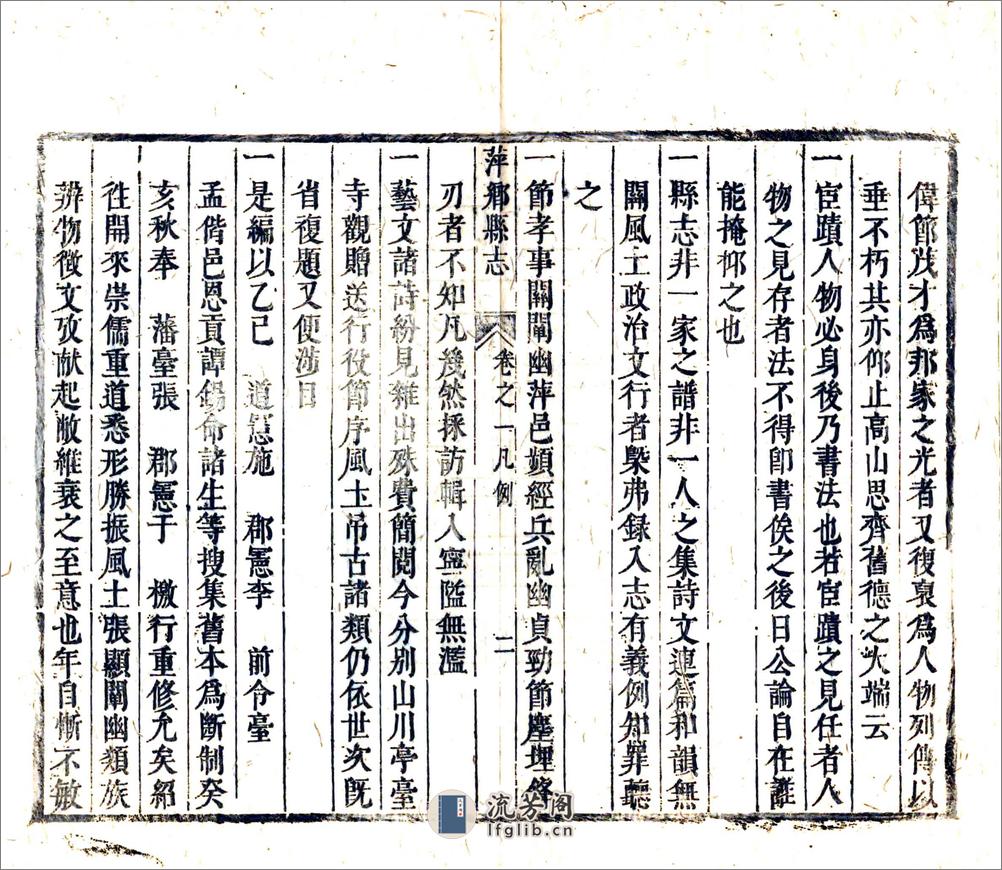 偉節茂才爲邦家之光者又復裒爲人物列傳以
垂不朽其亦仰止高山思齊舊德之大端云
一宦蹟人物必身後乃書法也若宦蹟之見任者人
物之見存者法不得卽書俟之後日公論自在誰
能掩抑之也
一縣志非一家之譜非一人之集詩文連篇和韻無
關風土政治文行者槩弗録入志有義例知罪聽
之
一節孝事關闡幽萍邑頻經兵亂幽貞勁節塵埋鋒
萍鄉縣志
卷之一凡例
二
刃者不知凡幾然採訪輯入寧隘無濫
一藝文諸詩紛見雜出殊費簡閱今分别山川亭臺
寺觀贈送行役節序風土吊古諸類仍依世次旣
省複題又便涉目
一是編以乙巳 道憲施 郡憲李 前令臺
孟偕邑恩貢譚錫命諸生等搜集舊本爲斷制癸
亥秋奉 藩臺張 郡憲于 檄行重修允矣紹
徃開來崇儒重道悉形勝振風土張顯闡幽類族
辨物徵文攷献起敝維衰之至意也年自慚不敏
流芳阁
lfglib.cn